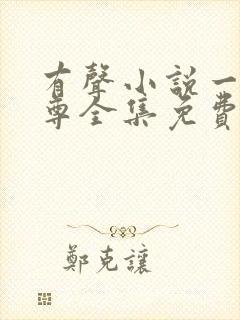 有聲小說一
尊全集免費
鄭克讓